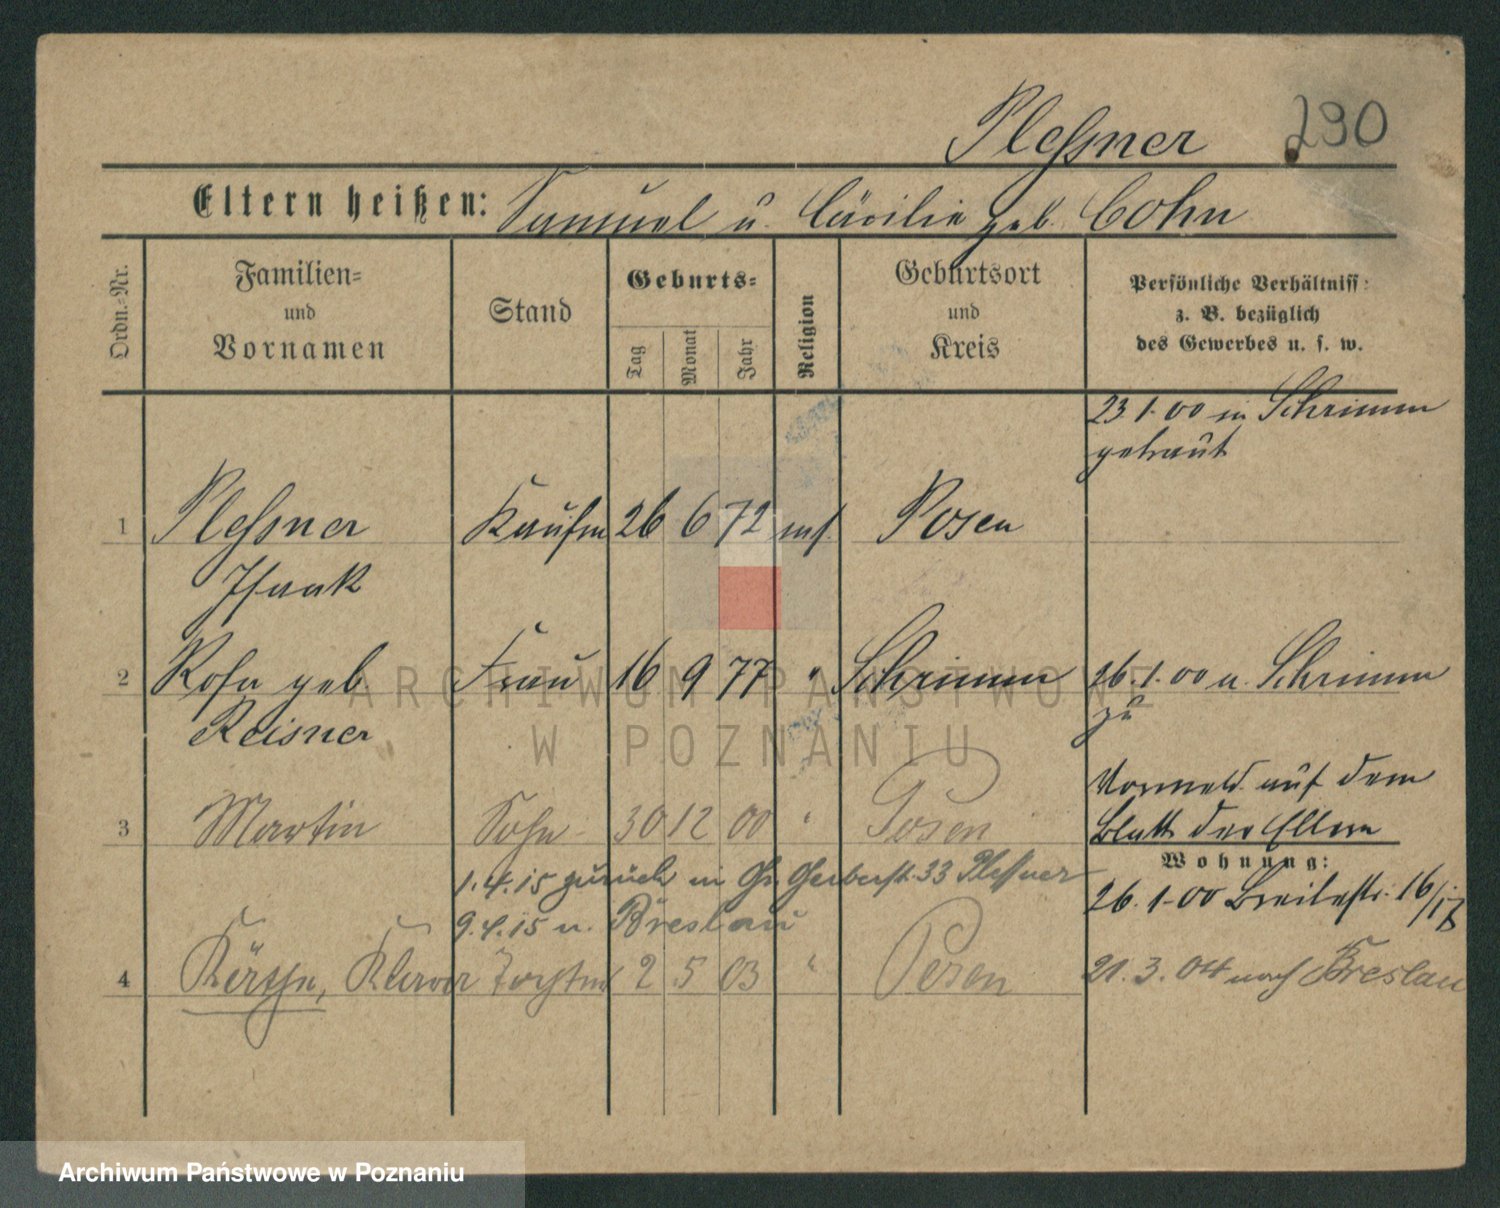 Pleßner 290
Eltern heißen: Samuel u. Cäcilie geb. Cohn
Ordn.-Nr.
Familien-
und
Vornamen
Stand
Geburts-
Tag
Monat
Jahr
Religion
Geburtsort
und
Kreis
Persönliche Verhältniss:
z. B. bezüglich
des Gewerbes u. s. w.
23.1.00 in Schrimm
getraut
1 Pleßner Kaufm 26 6 72 mos. Posen
Isaak
2 Rosa geb. Frau 16 9 77 " Schrimm 26.1.00 v. Schrimm
Reisner zu
Vormeld. auf dem
3 Martin Sohn 30 12 00 " Posen Blatt der Eltern
Wohnung:
1.4.15 zurück in Gr. Gerberst. 33 Plessner
26.1.00 Breitestr. 16/17
9.4.15 n. Breslau
4 Käthe, Klara Tochter 2 5 03 " Posen 21.3.04 nach Breslau
ARCHIWUM PAŃSTWOWE
W POZNANIU
Archiwum Państwowe w Poznaniu